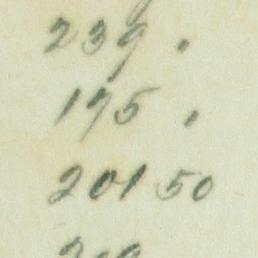 239.
175.
20150